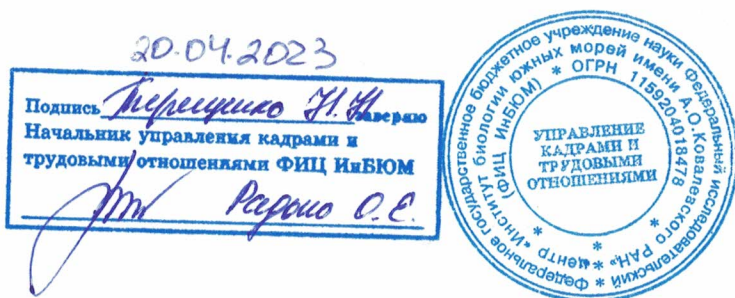 20.04.2023
Подпись Терещенко Н.Н. заверяю
Начальник управления кадрами и
трудовыми отношениями ФИЦ ИнБЮМ
О.Е.
Федеральное государственное бюджетное учреждение науки Федеральный исследовательский
центр «Институт биологии южных морей имени А.О.Ковалевского РАН»
(ФИЦ ИнБЮМ) * ОГРН 1159204018478
УПРАВЛЕНИЕ
КАДРАМИ И
ТРУДОВЫМИ
ОТНОШЕНИЯМИ